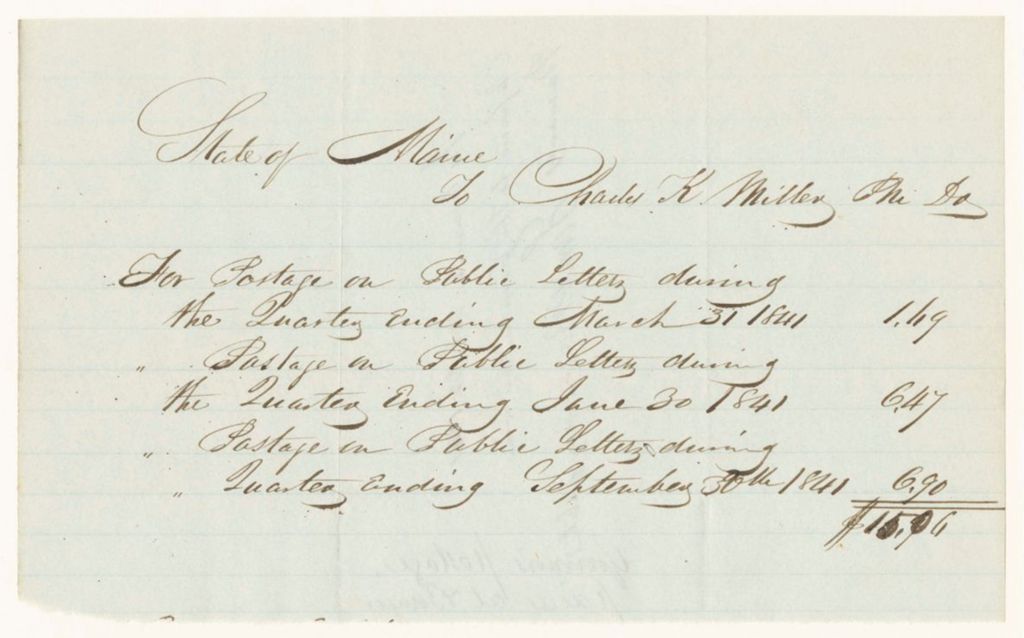 State of Maine
To Charles K Miller PM Dr
For Postage on Public Letters during
the Quarter Ending March 31 1841 1.69
" Postage on Public Letters during
the Quarter Ending June 30 1841 6.47
" Postage on Public Letters during
" Quarter Ending September 30th 1841 6.90
$15.06